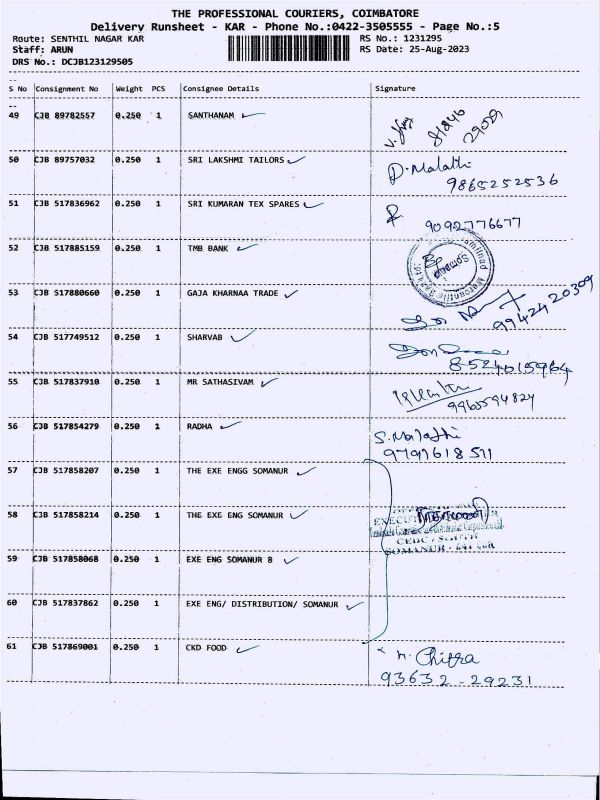 THE PROFESSIONAL COURIERS, COIMBATORE
Delivery Runsheet - KAR - Phone No.:0422-3505555 - Page No.:5
Route: SENTHIL NAGAR KAR RS No.: 1231295
Staff: ARUN RS Date: 25-Aug-2023
DRS No.: DCJB123129505
S No Consignment No Weight PCS Consignee Details Signature
49 CJB 89782557 0.250 1 SANTHANAM
50 CJB 89757032 0.250 1 SRI LAKSHMI TAILORS D.Malathi
9865252536
51 CJB 517836962 0.250 1 SRI KUMARAN TEX SPARES
9092776677
52 CJB 517885159 0.250 1 TMB BANK Tamilnad Mercantile Bank
Somanur
53 CJB 517880660 0.250 1 GAJA KHARNAA TRADE
9942420309
54 CJB 517749512 0.250 1 SHARVAB
8524015964
55 CJB 517837910 0.250 1 MR SATHASIVAM
56 CJB 517854279 0.250 1 RADHA S.Malathi
9791618511
57 CJB 517858207 0.250 1 THE EXE ENGG SOMANUR
58 CJB 517858214 0.250 1 THE EXE ENG SOMANUR
CEDC / SOUTH
SOMANUR
59 CJB 517858068 0.250 1 EXE ENG SOMANUR 8
60 CJB 517837862 0.250 1 EXE ENG/ DISTRIBUTION/ SOMANUR
61 CJB 517869001 0.250 1 CKD FOOD M. Chitra
93632-29231